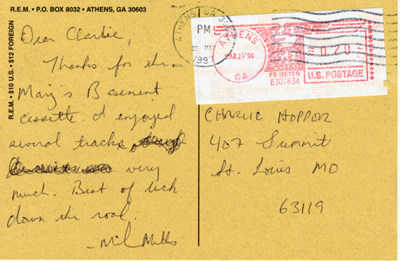 R.E.M. • P.O. BOX 8032 • ATHENS, GA 30603
R.E.M. • $10 U.S. • $12 FOREIGN
Dear Charlie,
Thanks for the
Mary's Basement
cassette. I enjoyed
several tracks
very
much. Best of luck
down the road.
Mills
ATHENS GA
PM
199
ATHENS
MAR 26'96
GA
0.20
PB METER
8307834
U.S. POSTAGE
CHARLIE HOPPER
407 Summit
St. Louis MO
63119